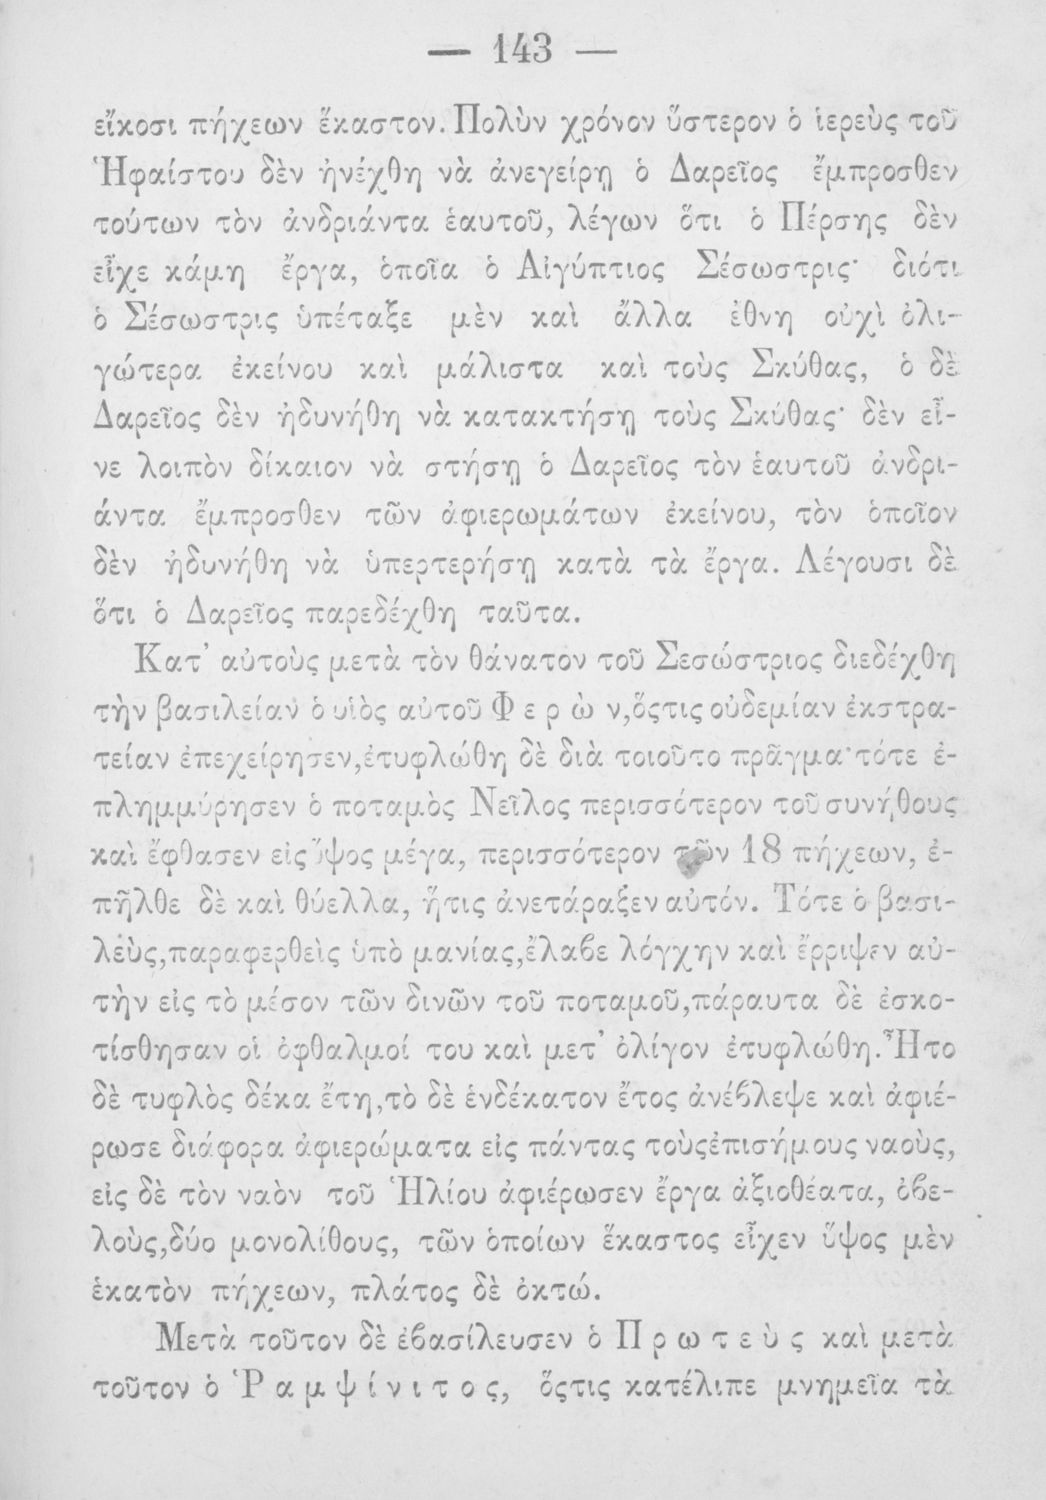 — 143 —
εἴκοσι πήχεων ἕκαστον. Πολὺν χρόνον ὕστερον ὁ ἱερεὺς τοῦ
Ἡφαίστου δὲν ἠνέχθη νὰ ἀνεγείρῃ ὁ Δαρεῖος ἔμπροσθεν
τούτων τὸν ἀνδριάντα ἑαυτοῦ, λέγων ὅτι ὁ Πέρσης δὲν
εἶχε κάμη ἔργα, ὁποῖα ὁ Αἰγύπτιος Σέσωστρις· διότι
ὁ Σέσωστρις ὑπέταξε μὲν καὶ ἄλλα ἐθνη οὐχὶ ὀλι-
γώτερα ἐκείνου καὶ μάλιστα καὶ τοὺς Σκύθας, ὁ δὲ
Δαρεῖος δὲν ἠδυνήθη νὰ κατακτήσῃ τοὺς Σκύθας· δὲν εἶ-
νε λοιπὸν δίκαιον νὰ στήσῃ ὁ Δαρεῖος τὸν ἑαυτοῦ ἀνδρι-
άντα ἔμπροσθεν τῶν ἀφιερωμάτων ἐκείνου, τὸν ὁποῖον
δὲν ἠδυνήθη νὰ ὑπερτερήσῃ κατὰ τὰ ἔργα. Λέγουσι δὲ
ὅτι ὁ Δαρεῖος παρεδέχθη ταῦτα.
Κατ' αὐτοὺς μετὰ τὸν θάνατον τοῦ Σεσώστριος διεδέχθη
τὴν βασιλείαν ὁ υἱὸς αὐτοῦ Φ ε ρ ὼ ν,ὅςτις οὐδεμίαν ἐκστρα-
τείαν ἐπεχείρησεν,ἐτυφλώθη δὲ διὰ τοιοῦτο πρᾶγμα·τότε ἐ-
πλημμύρησεν ὁ ποταμὸς Νεῖλος περισσότερον τοῦ συνήθους
καὶ ἔφθασεν εἰς ὕψος μέγα, περισσότερον τῶν 18 πήχεων, ἐ-
πῆλθε δὲ καὶ θύελλα, ἥτις ἀνετάραξεν αὐτόν. Τότε ὁ βασι-
λεὺς,παραφερθεὶς ὑπὸ μανίας,ἔλαβε λόγχην καὶ ἔρριψεν αὐ-
τὴν εἰς τὸ μέσον τῶν δινῶν τοῦ ποταμοῦ,πάραυτα δὲ ἐσκο-
τίσθησαν οἱ ὀφθαλμοί του καὶ μετ' ὀλίγον ἐτυφλώθη. Ἦτο
δὲ τυφλὸς δέκα ἔτη,τὸ δὲ ἑνδέκατον ἔτος ἀνέβλεψε καὶ ἀφιέ-
ρωσε διάφορα ἀφιερώματα εἰς πάντας τοὺςἐπισήμους ναοὺς,
εἰς δὲ τὸν ναὸν τοῦ Ἡλίου ἀφιέρωσεν ἔργα ἀξιοθέατα, ὀβε-
λοὺς,δύο μονολίθους, τῶν ὁποίων ἕκαστος εἶχεν ὕψος μὲν
ἑκατὸν πήχεων, πλάτος δὲ ὀκτώ.
Μετὰ τοῦτον δὲ ἐβασίλευσεν ὁ Π ρ ω τ ε ὺ ς καὶ μετὰ
τοῦτον ὁ Ῥ α μ ψ ί ν ι τ ο ς, ὅςτις κατέλιπε μνημεῖα τὰ